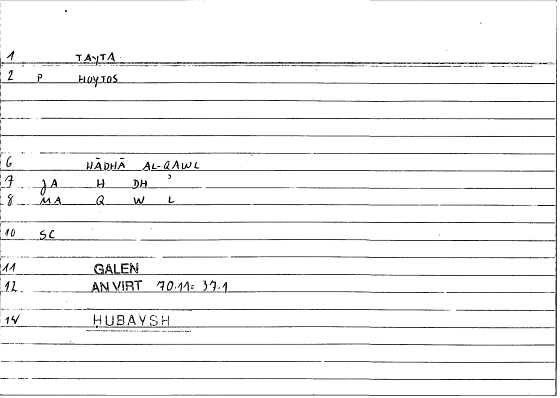 1 TAYTA
2 P HOYTOS
6 HĀDHĀ AL-QAWL
7 JA H DH ʾ
8 MA Q W L
10 SC
11 GALEN
12 AN VIRT 70.11= 37.1
14 ḤUBAYSH